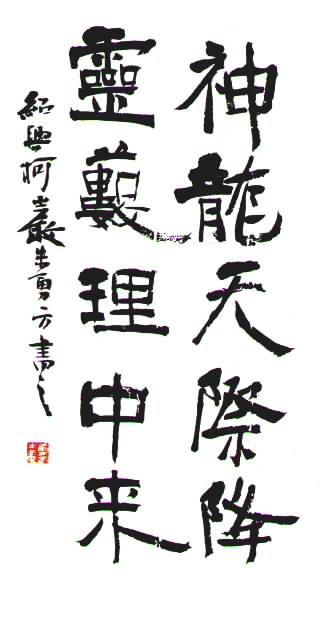 神龍天際降
靈藪理中来
紹興柯巖朱勇方書之